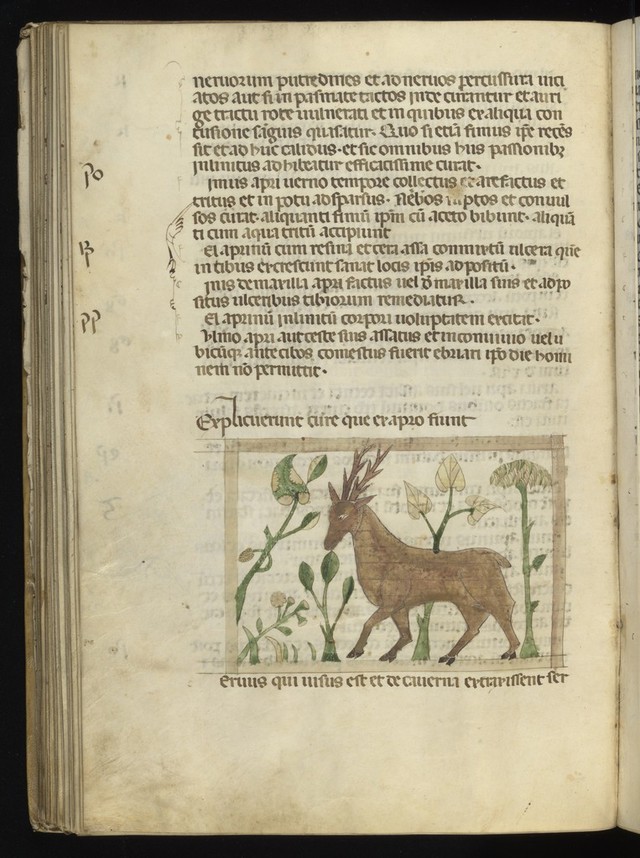 neruorum putredines et ad neruos percussura uici
atos aut si in pasmate tactos inde curantur et auri
ge tractu rote uulnerati et in quibus ex aliqua con
tusione sāguis quasatur. Quo si etiā fimus ipse recēs
sit et ad huc calidus. et sic omnibus huis passionibꝫ
inlinitus adhibeatur efficacissime curat.
imus apri uerno tempore collectus et arefactus et
tritus et in potu adsparsus. neruos ruptos et conuul
sos curat. aliquanti fimū ipm cū aceto bibunt. aliquā
ti cum aqua tritū accipiunt
el aprinū cum resina et cera assa commixtū ulcera que
in tibus excrescunt sanat locis ipis ad positū.
inis de maxilla apri factus uel de maxilla suis et adpo
situs ulceribus tibiorum remediatur.
el aprinū inlinitū corpori uoluptatem excitat.
ulmo apri aut ceste suis assatus et in comino uel u
bicūqꝫ ante cibos comestus fuerit ebriari ipo die homi
nem nō permittit.
Explicuerunt cure que ex apro fiunt
Eruus qui uisus est et de cauerna extraxissent ser